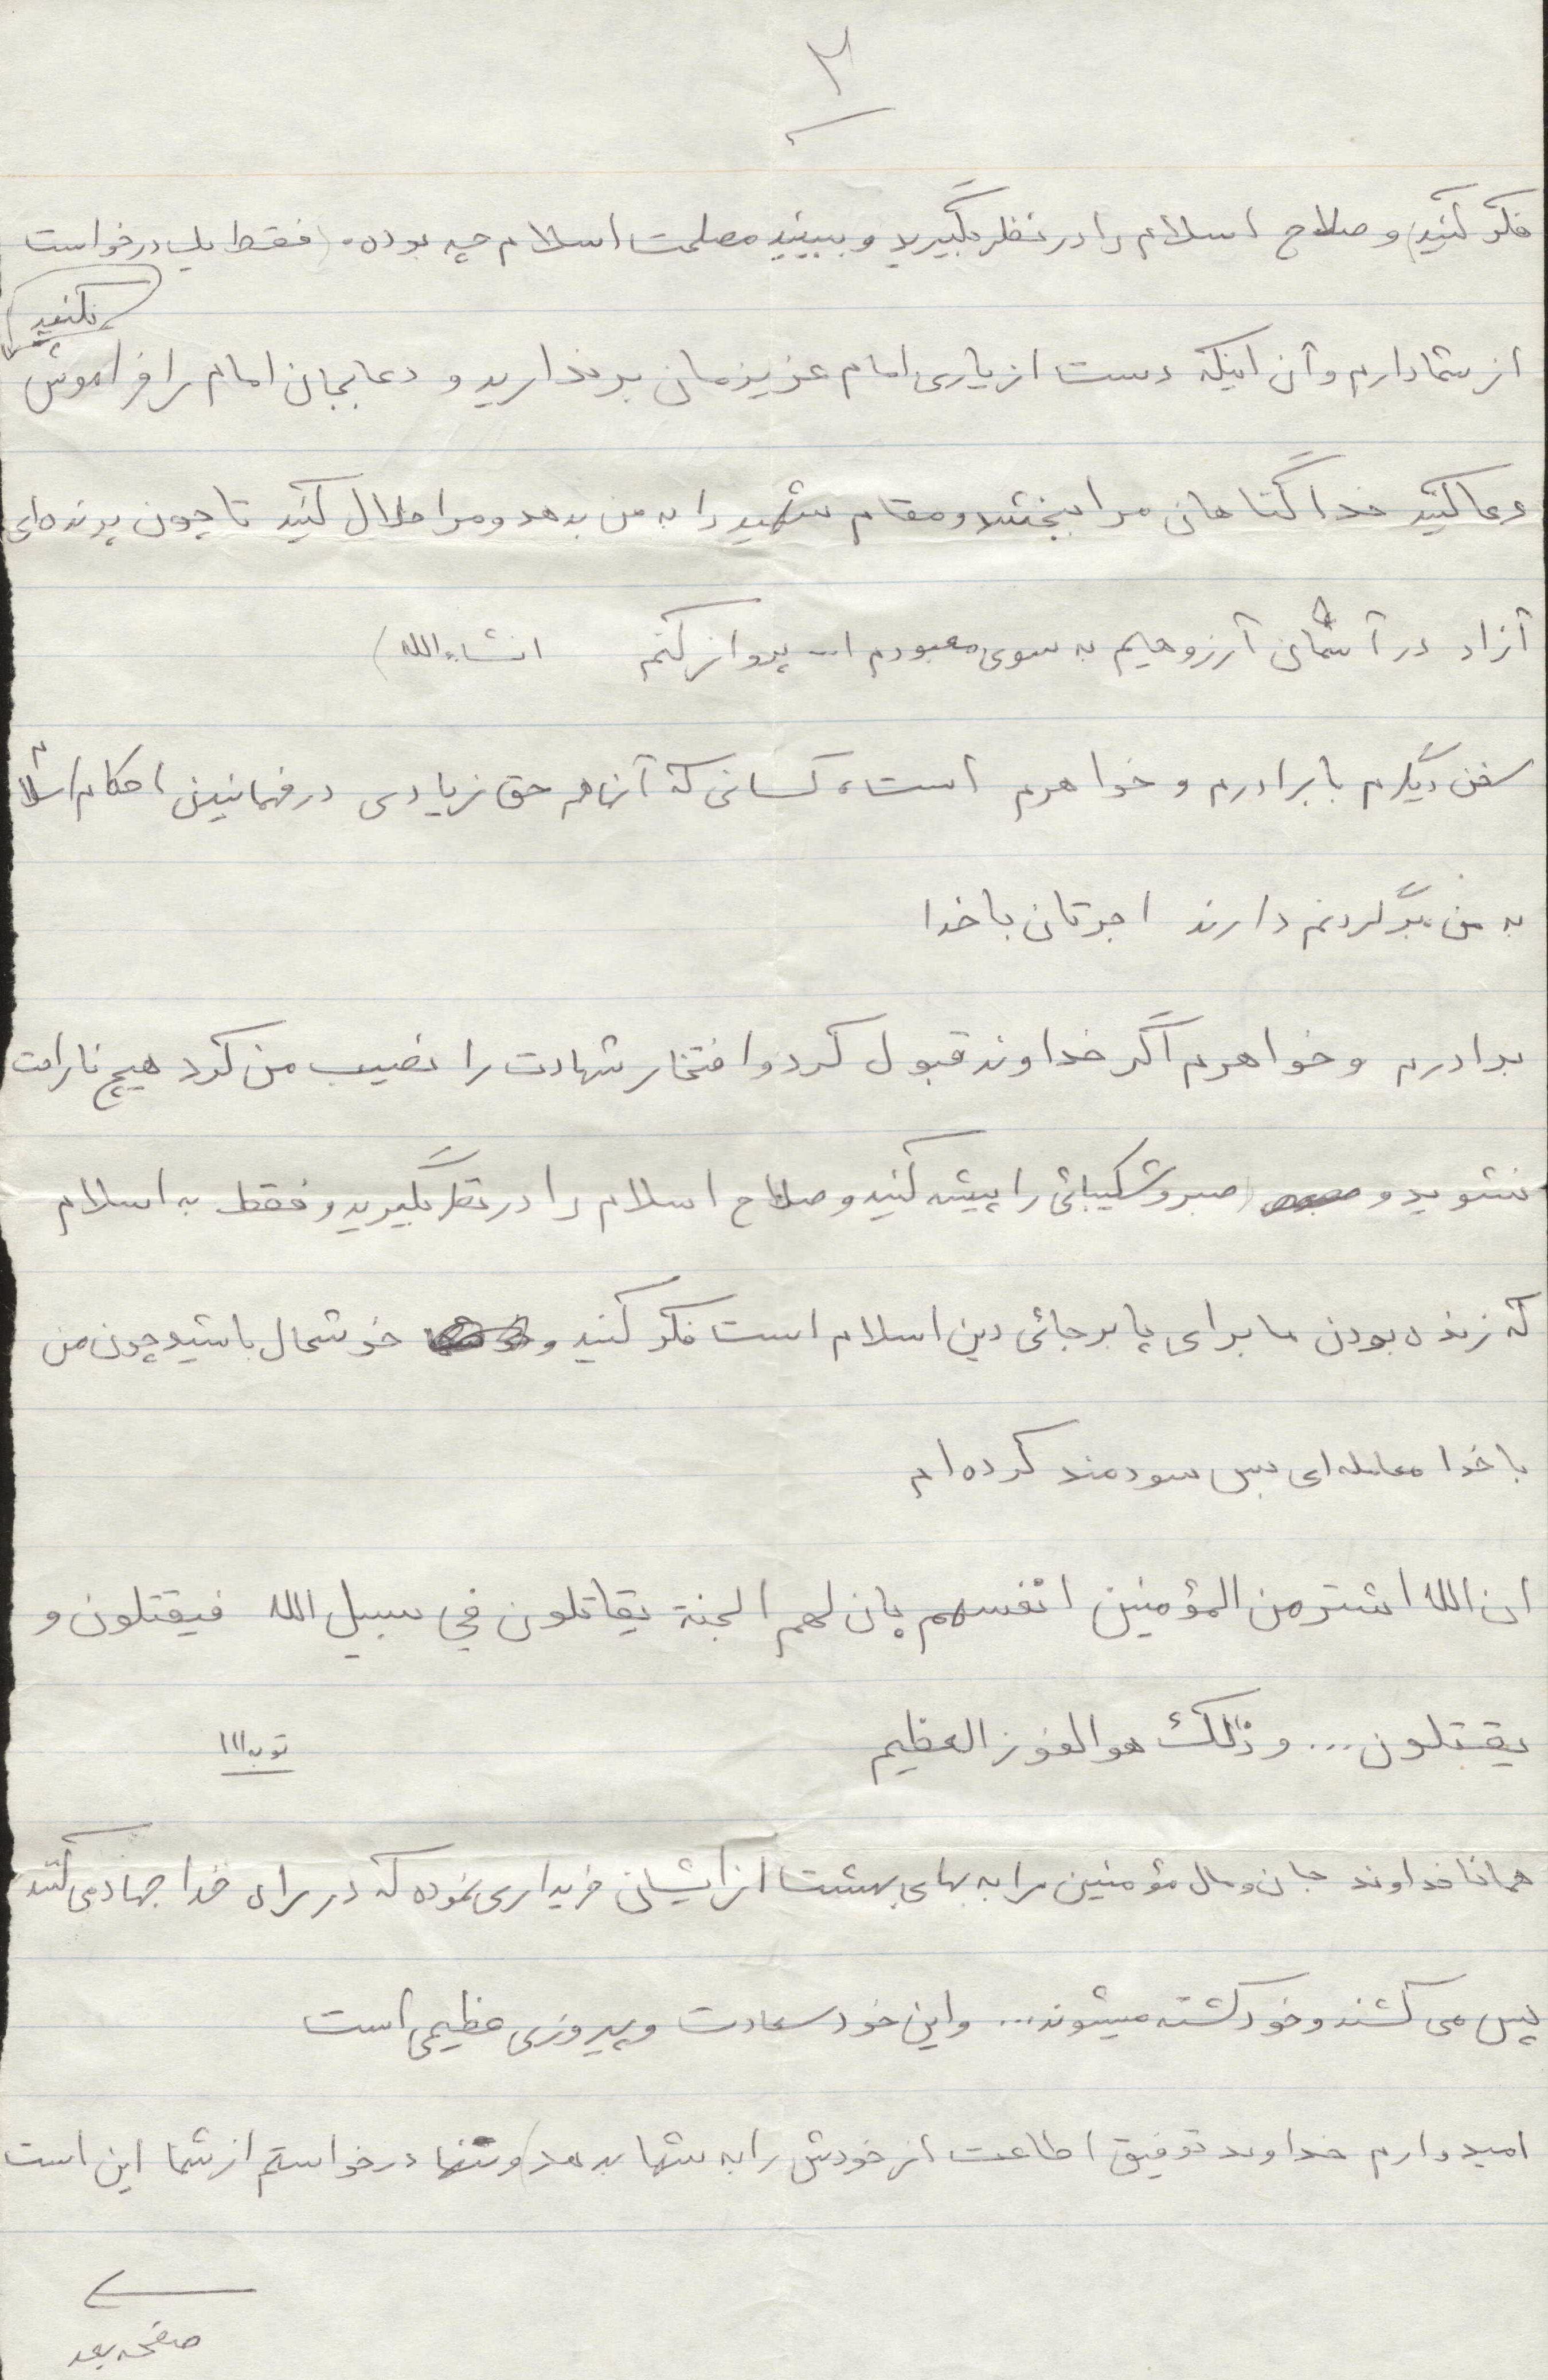 ۲
فکر کنید) و صلاح اسلام را در نظر بگیرید و ببینید مصلحت اسلام چه بوده. (فقط یک درخواست
از شما دارم و آن اینکه دست از یاری امام عزیزمان برندارید و دعا بجان امام را فراموش نکنید
دعا کنید خدا گناهان مرا ببخشد و مقام شهید را به من بدهد و مرا حلال کنید تا چون پرنده‌ای
آزاد در آسمان آرزوهایم به سوی معبودم الله پرواز کنم انشاءالله)
سخن دیگرم با برادرم و خواهرم است، کسانی که آنها هم حق زیادی در فهمانیدن احکام اسلام
به من بر گردنم دارند اجرتان با خدا
برادرم و خواهرم اگر خداوند قبول کرد و افتخار شهادت را نصیب من کرد هیچ ناراحت
نشوید و (صبر و شکیبائی را پیشه کنید و صلاح اسلام را در نظر بگیرید و فقط به اسلام
که زنده بودن ما برای پا برجائی دین اسلام است فکر کنید و خوشحال باشید چون من
با خدا معامله‌ای بس سودمند کرده‌ام
ان الله اشتر من المؤمنین انفسهم بان لهم الجنة یقاتلون في سبیل الله فیقتلون و
یقتلون ... و ذلک هو الفوز العظیم توبه ۱۱۱
همانا خداوند جان و مال مؤمنین را به بهای بهشت از ایشان خریداری نموده که در راه خدا جهاد می کنند
پس می کشند و خود کشته میشوند ... و این خود سعادت و پیروزی عظیمی است
امیدوارم خداوند توفیق اطاعت از خودش را به شما بدهد) و تنها درخواستم از شما این است
صفحه بعد